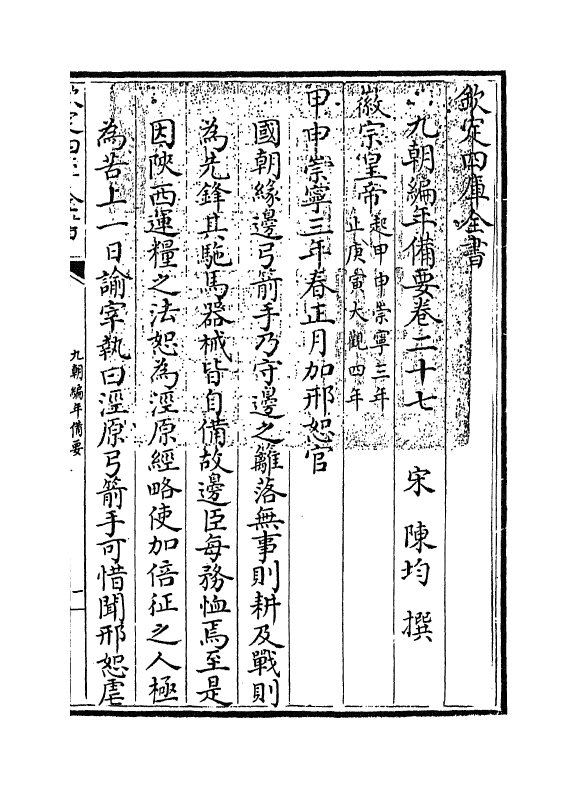 欽定四庫全書
九朝編年備要卷二十七　宋　陳均　撰
徽宗皇帝
起甲申崇寧三年
止庚寅大觀四年
甲申崇寧三年春正月加邢恕官
國朝緣邊弓箭手乃守邊之籬落無事則耕及戰則
為先鋒其駞馬器械皆自備故邊臣每務恤焉至是
因陜西運糧之法恕為涇原經略使加倍征之人極
為苦上一日諭宰執曰涇原弓箭手可惜聞邢恕虐
欽定四庫全書
九朝編年備要
一